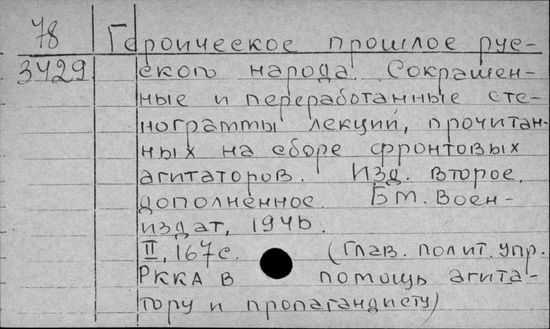 78 Героическое прошлое рус-
3429 ского народа. Сокращен-
ные и переработанные сте-
нограммы лекций, прочитан-
ных на сборе фронтовых
агитаторов. Изд. второе,
дополненное. Бм. Воен-
издат, 1946.
II, 167с. (Глав. полит. упр.
РККА в помощь агита-
тору и пропагандисту)